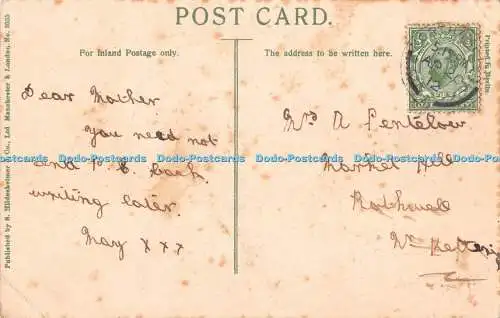 POST CARD.
For Inland Postage only.
The address to be written here.
Dear Mother
you need not
send P. C. back
writing later.
May x x x
Mrs A Pentelow
Market Hill
Rothwell
Nr Kettering
Published by S. Hildesheimer & Co., Ltd Manchester & London. No. 5255
Printed in Berlin
Dodo-Postcards Dodo-Postcards Dodo-Postcards Dodo-Postcards Dodo-Postcards Dodo-Postcards